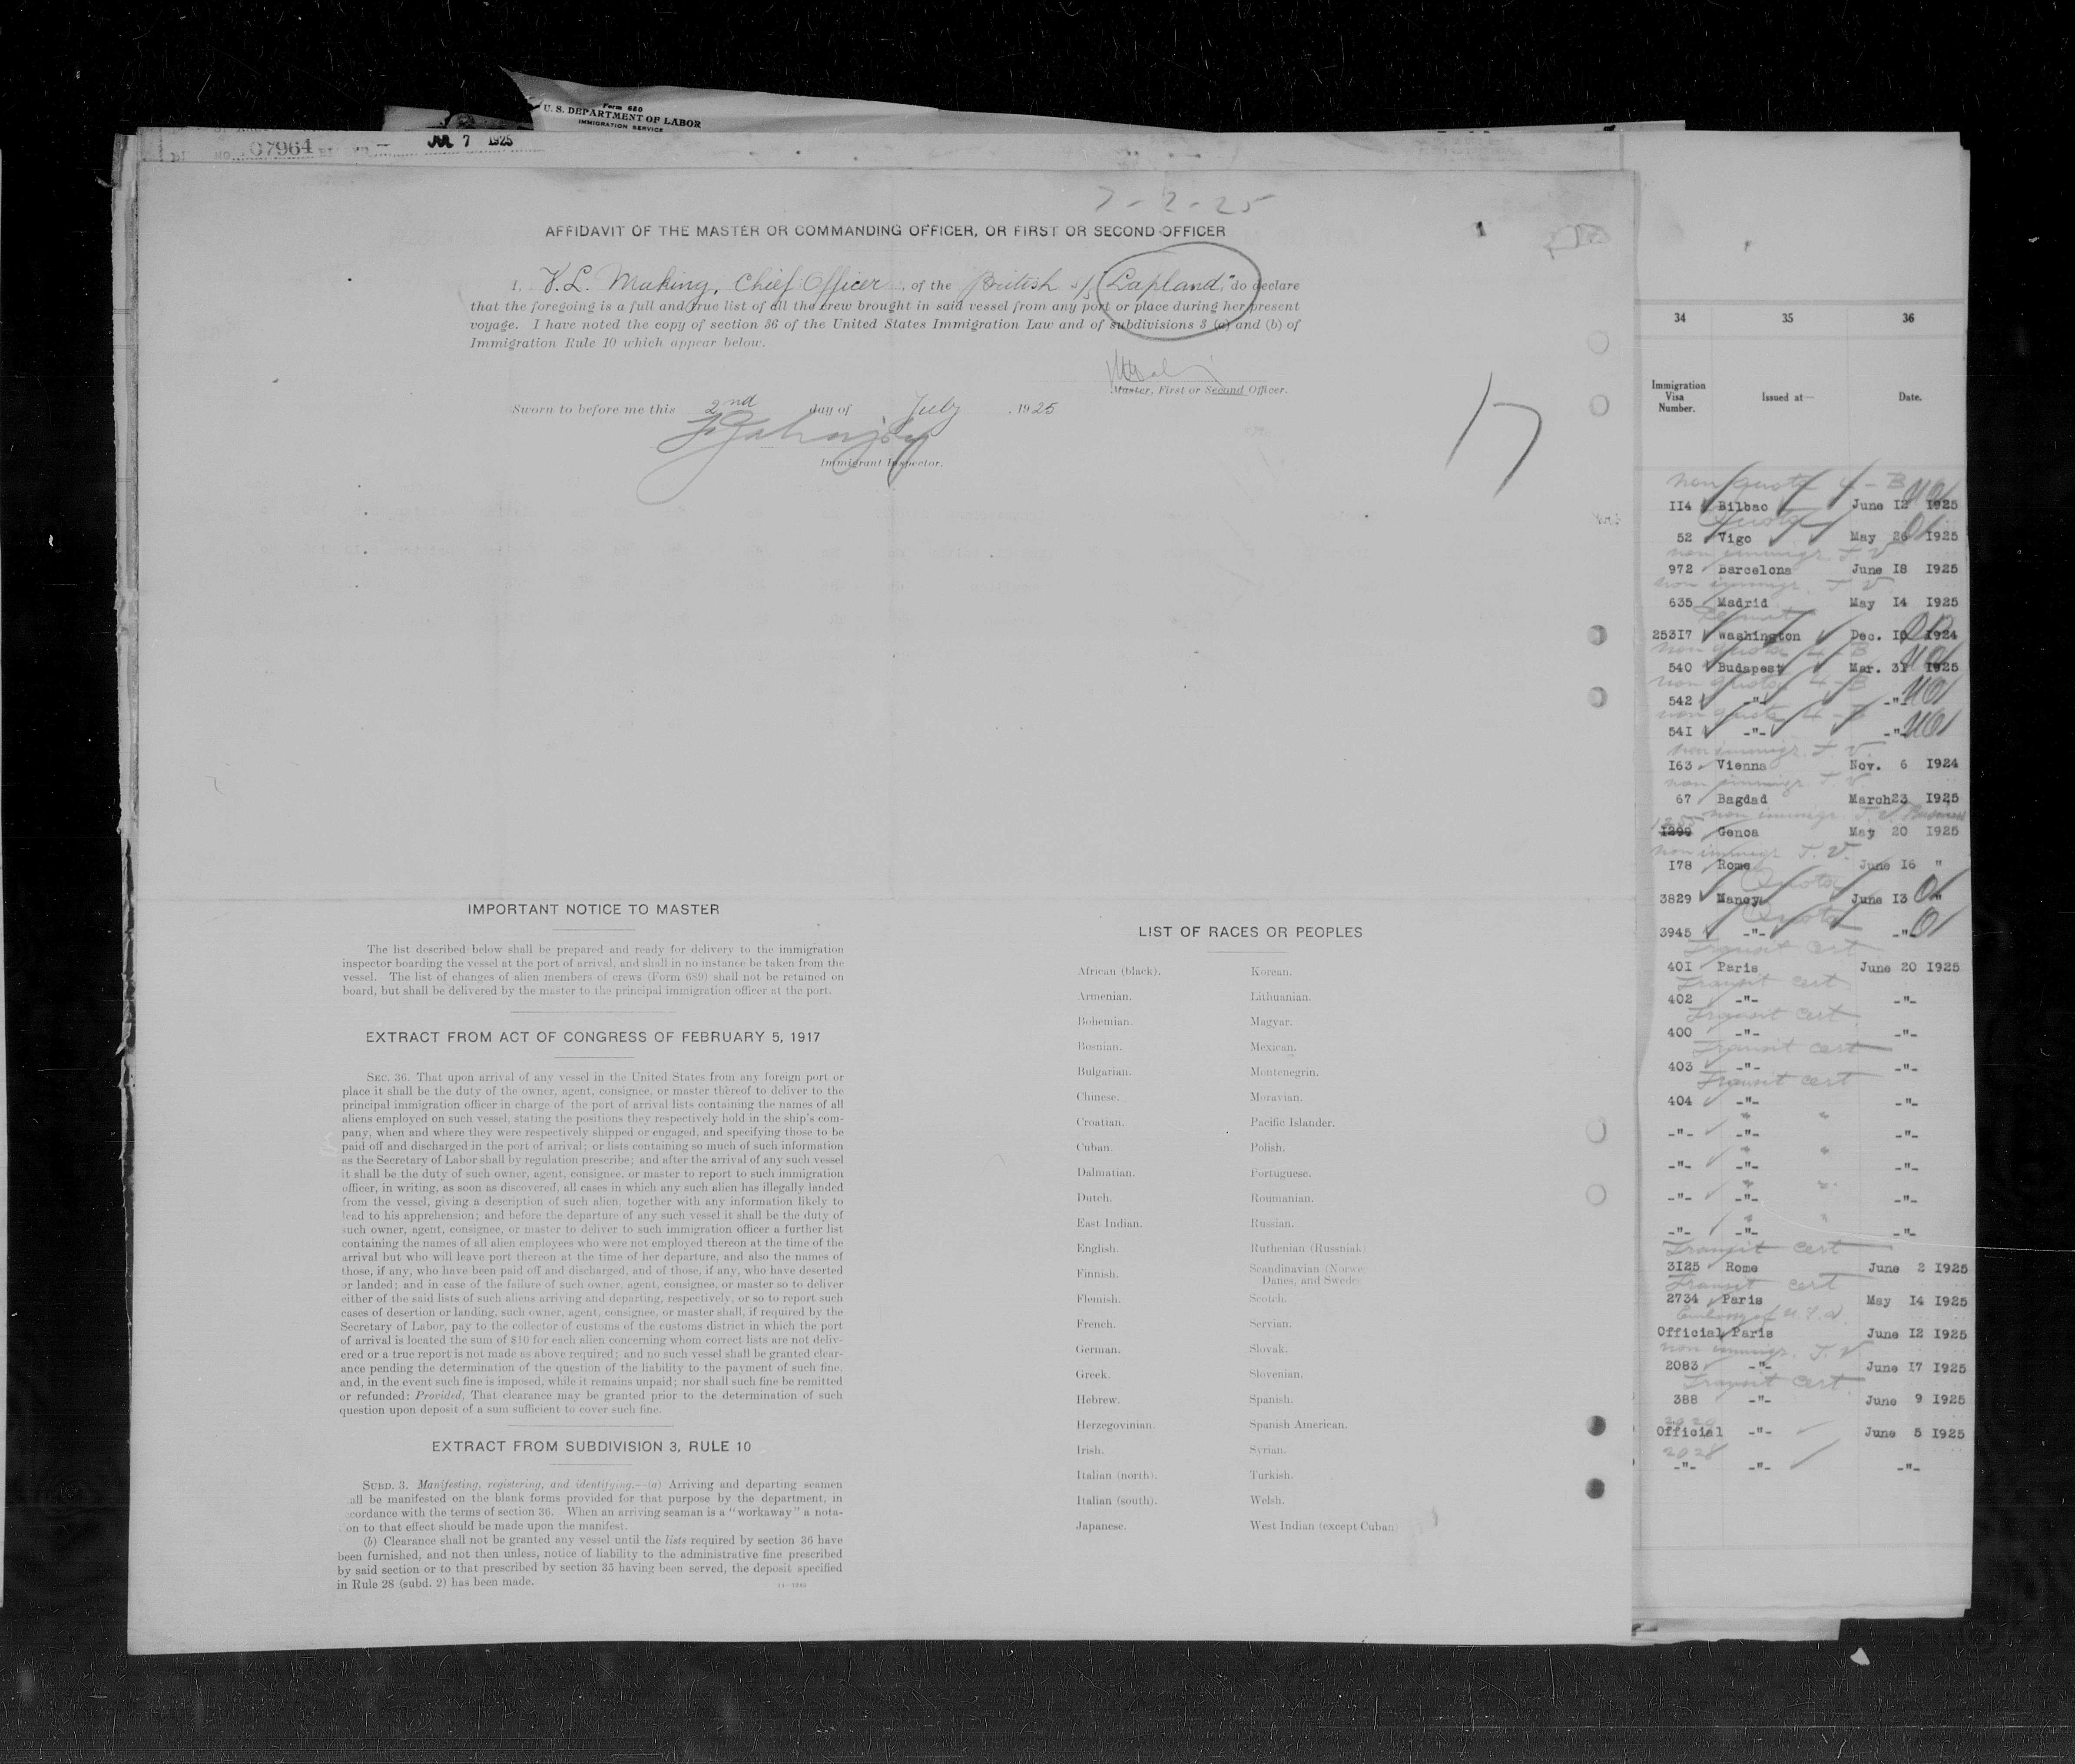 Form 680
U. S. DEPARTMENT OF LABOR
IMMIGRATION SERVICE
NO. 07964
JUL 7 1925
7-2-25
AFFIDAVIT OF THE MASTER OR COMMANDING OFFICER, OR FIRST OR SECOND OFFICER
1
I, V.L. Making, Chief Officer, of the British s/s "Lapland", do declare
that the foregoing is a full and true list of all the crew brought in said vessel from any port or place during her present
voyage. I have noted the copy of section 36 of the United States Immigration Law and of subdivisions 3 (a) and (b) of
Immigration Rule 10 which appear below.
Master, First or Second Officer.
Sworn to before me this 2nd day of July, 1925
Immigrant Inspector.
17
IMPORTANT NOTICE TO MASTER
The list described below shall be prepared and ready for delivery to the immigration
inspector boarding the vessel at the port of arrival, and shall in no instance be taken from the
vessel. The list of changes of alien members of crews (Form 689) shall not be retained on
board, but shall be delivered by the master to the principal immigration officer at the port.
EXTRACT FROM ACT OF CONGRESS OF FEBRUARY 5, 1917
SEC. 36. That upon arrival of any vessel in the United States from any foreign port or
place it shall be the duty of the owner, agent, consignee, or master thereof to deliver to the
principal immigration officer in charge of the port of arrival lists containing the names of all
aliens employed on such vessel, stating the positions they respectively hold in the ship's com-
pany, when and where they were respectively shipped or engaged, and specifying those to be
paid off and discharged in the port of arrival; or lists containing so much of such information
as the Secretary of Labor shall by regulation prescribe; and after the arrival of any such vessel
it shall be the duty of such owner, agent, consignee, or master to report to such immigration
officer, in writing, as soon as discovered, all cases in which any such alien has illegally landed
from the vessel, giving a description of such alien, together with any information likely to
lead to his apprehension; and before the departure of any such vessel it shall be the duty of
such owner, agent, consignee, or master to deliver to such immigration officer a further list
containing the names of all alien employees who were not employed thereon at the time of the
arrival but who will leave port thereon at the time of her departure, and also the names of
those, if any, who have been paid off and discharged, and of those, if any, who have deserted
or landed; and in case of the failure of such owner, agent, consignee, or master so to deliver
either of the said lists of such aliens arriving and departing, respectively, or so to report such
cases of desertion or landing, such owner, agent, consignee, or master shall, if required by the
Secretary of Labor, pay to the collector of customs of the customs district in which the port
of arrival is located the sum of $10 for each alien concerning whom correct lists are not deliv-
ered or a true report is not made as above required; and no such vessel shall be granted clear-
ance pending the determination of the question of the liability to the payment of such fine,
and, in the event such fine is imposed, while it remains unpaid; nor shall such fine be remitted
or refunded: Provided, That clearance may be granted prior to the determination of such
question upon deposit of a sum sufficient to cover such fine.
EXTRACT FROM SUBDIVISION 3, RULE 10
SUBD. 3. Manifesting, registering, and identifying.—(a) Arriving and departing seamen
all be manifested on the blank forms provided for that purpose by the department, in
cordance with the terms of section 36. When an arriving seaman is a "workaway" a nota-
on to that effect should be made upon the manifest.
(b) Clearance shall not be granted any vessel until the lists required by section 36 have
been furnished, and not then unless, notice of liability to the administrative fine prescribed
by said section or to that prescribed by section 35 having been served, the deposit specified
in Rule 28 (subd. 2) has been made.
LIST OF RACES OR PEOPLES
African (black). Korean.
Armenian. Lithuanian.
Bohemian. Magyar.
Bosnian. Mexican.
Bulgarian. Montenegrin.
Chinese. Moravian.
Croatian. Pacific Islander.
Cuban. Polish.
Dalmatian. Portuguese.
Dutch. Roumanian.
East Indian. Russian.
English. Ruthenian (Russniak)
Finnish. Scandinavian (Norwe
Danes, and Swede
Flemish. Scotch.
French. Servian.
German. Slovak.
Greek. Slovenian.
Hebrew. Spanish.
Herzegovinian. Spanish American.
Irish. Syrian.
Italian (north). Turkish.
Italian (south). Welsh.
Japanese. West Indian (except Cuban)
34 35 36
Immigration Visa Number. Issued at— Date.
non quota 4-B
114 Bilbao June 12 1925
Quota
52 Vigo May 26 1925
non immigr. T.V.
972 Barcelona June 18 1925
non immigr. T.V.
635 Madrid May 14 1925
Permit
25317 Washington Dec. 10 1924
non quota 4-B
540 Budapest Mar. 31 1925
non quota 4-B
542 -"- -"-
non quota 4-B
541 -"- -"-
non immigr. T.V.
163 Vienna Nov. 6 1924
non immigr. T.V.
67 Bagdad March 23 1925
non immigr. T.V. Business
1299 Genoa May 20 1925
non immigr. T.V.
178 Rome June 16 "
Quota
3829 Nancy June 13 "
Quota
3945 -"- -"-
Transit cert
401 Paris June 20 1925
Transit cert
402 -"- -"-
Transit cert
400 -"- -"-
Transit cert
403 -"- -"-
Transit cert
404 -"- -"-
" "
-"- -"- -"-
" "
-"- -"- -"-
" "
-"- -"- -"-
" "
-"- -"- -"-
Transit cert
3125 Rome June 2 1925
Transit cert
2734 Paris May 14 1925
Embassy of U.S.A.
Official Paris June 12 1925
non immigr. T.V.
2083 -"- June 17 1925
Transit cert
388 -"- June 9 1925
2029
Official -"- June 5 1925
2028
-"- -"- -"-